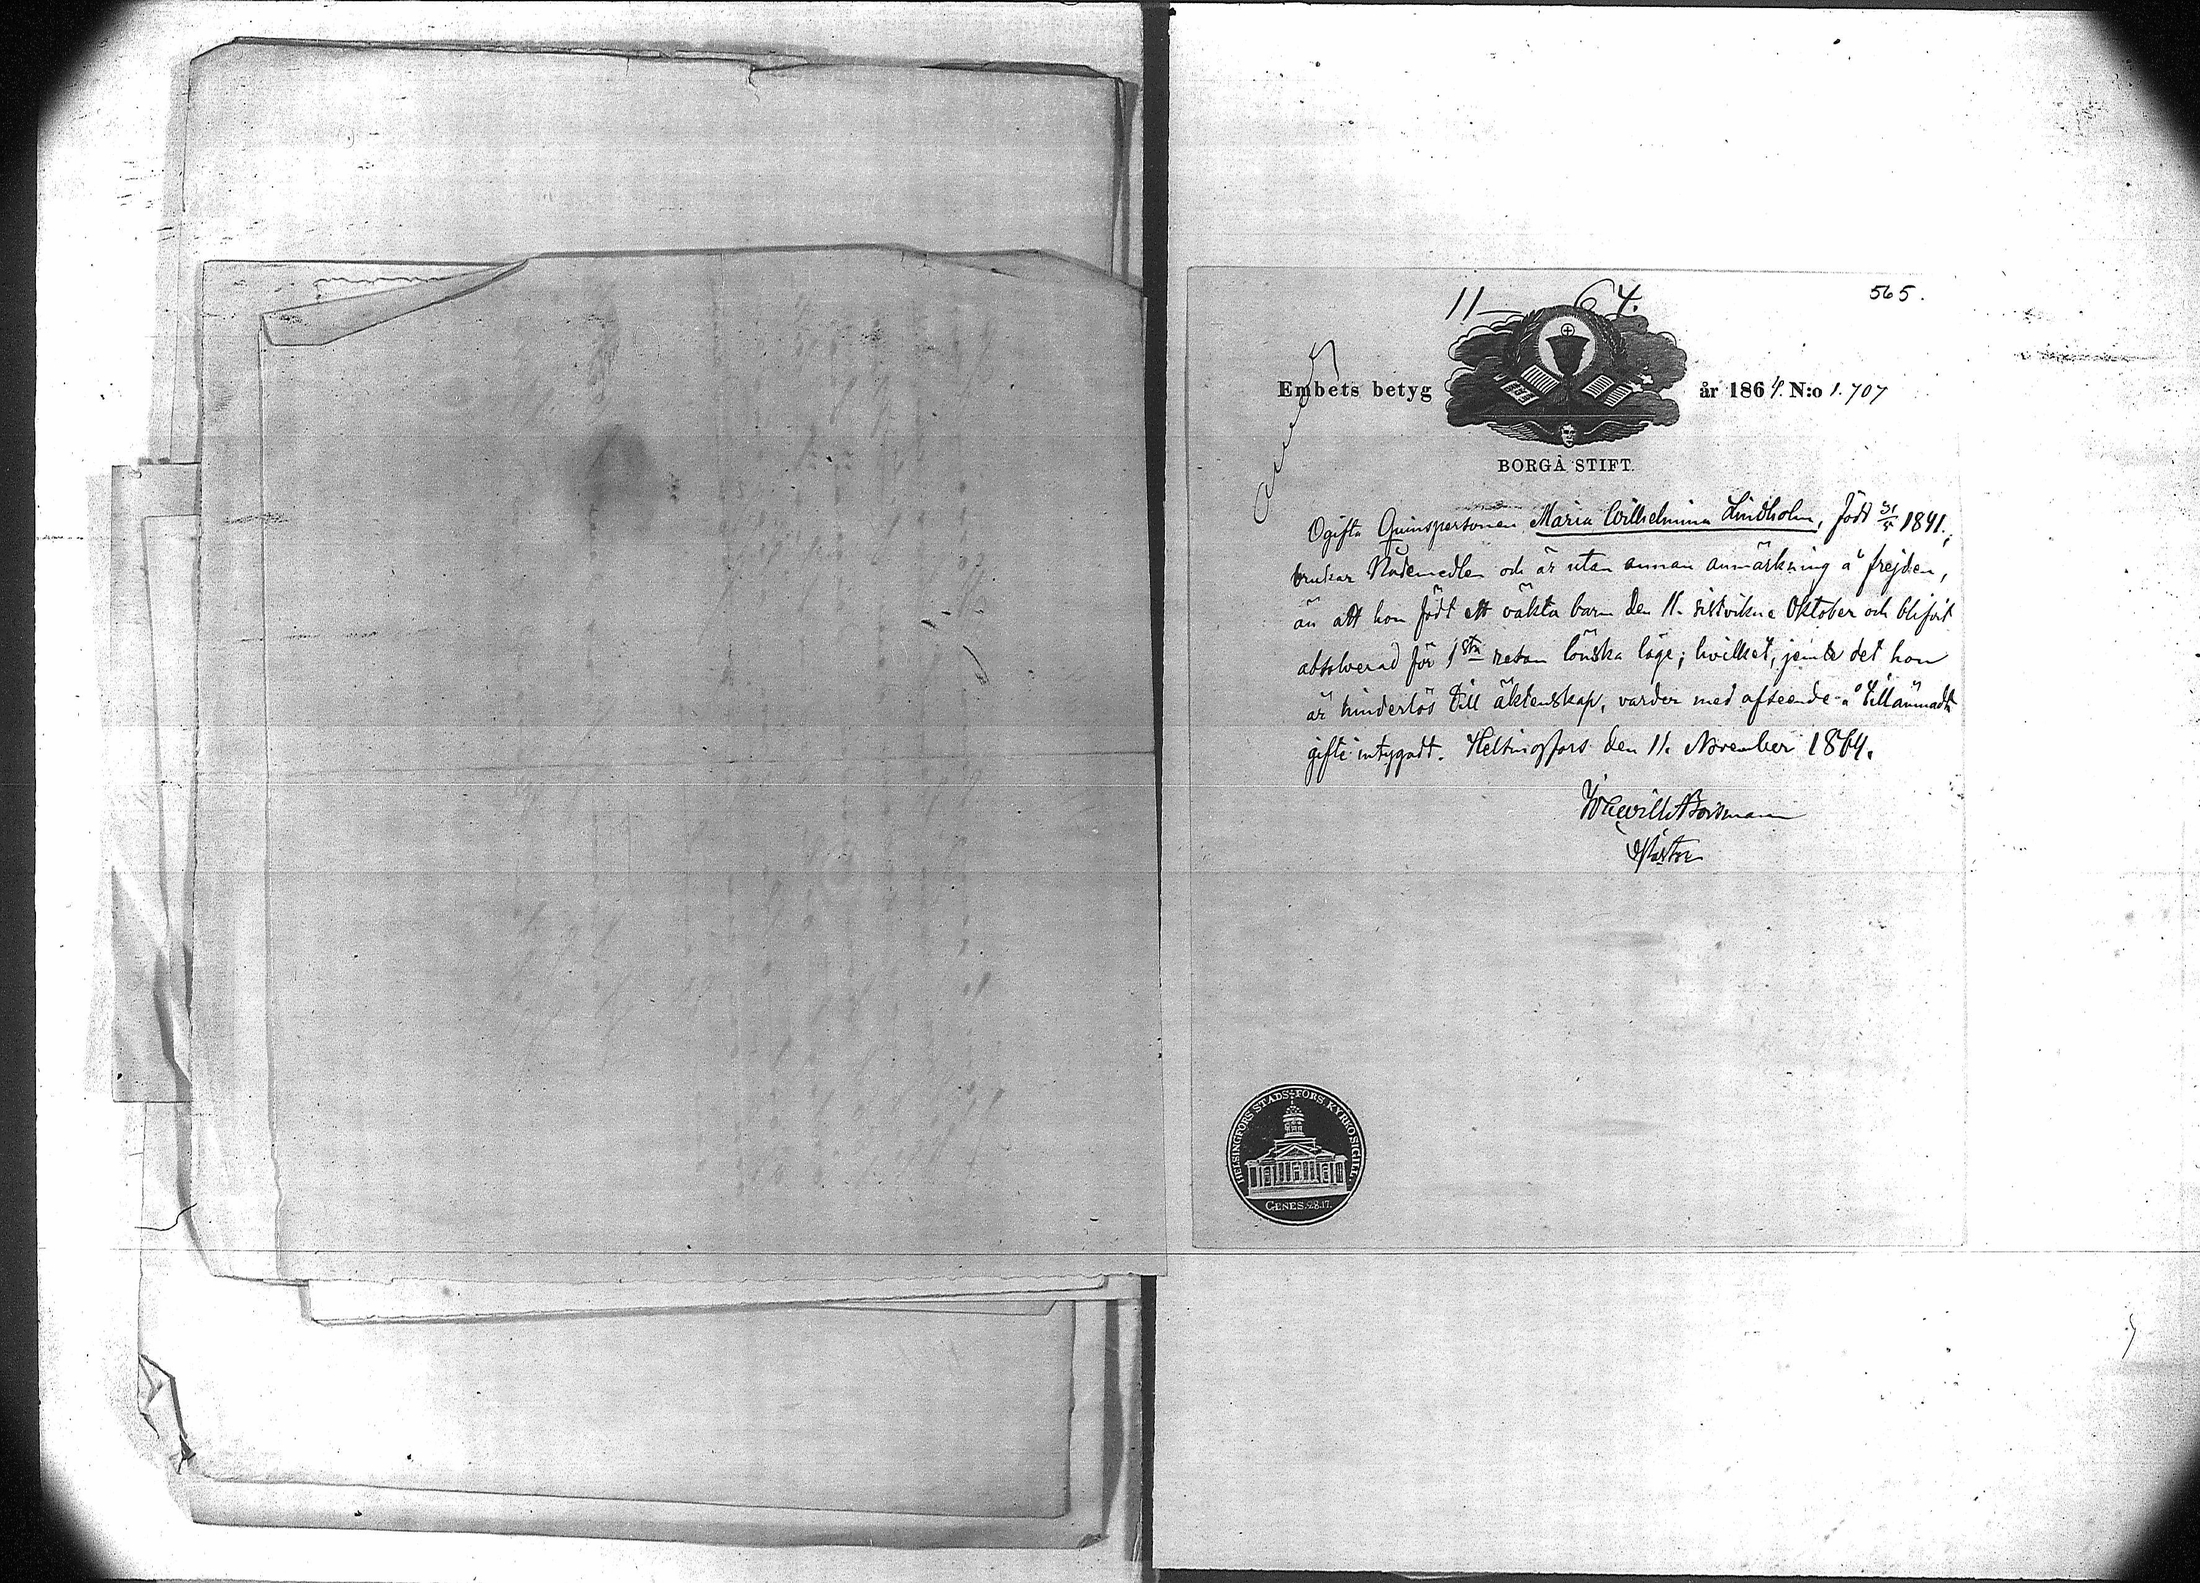 11 64.
565.
Embets betyg år 1864. N:o 1.707
BORGÅ STIFT.
Ogifta Qvinspersonen Maria Wilhelmina Lindholm, född 31/5 1841.,
brukar Nådemedlen och är utan annan anmärkning å frejden,
än att hon född ett oäkta barn den 11. sistvikne Oktober och blifvit
absolverad för 1sta resan lönska läge; hvilket, jemte det hon
är hinderlös till äktenskap, varder med afseende å tillämnadt
gifte intygadt. Helsingfors den 11. November 1864.
Pastor
HELSINGFORS STADS-FÖRS. KYRKOSIGILL.
GENES. 28.17.